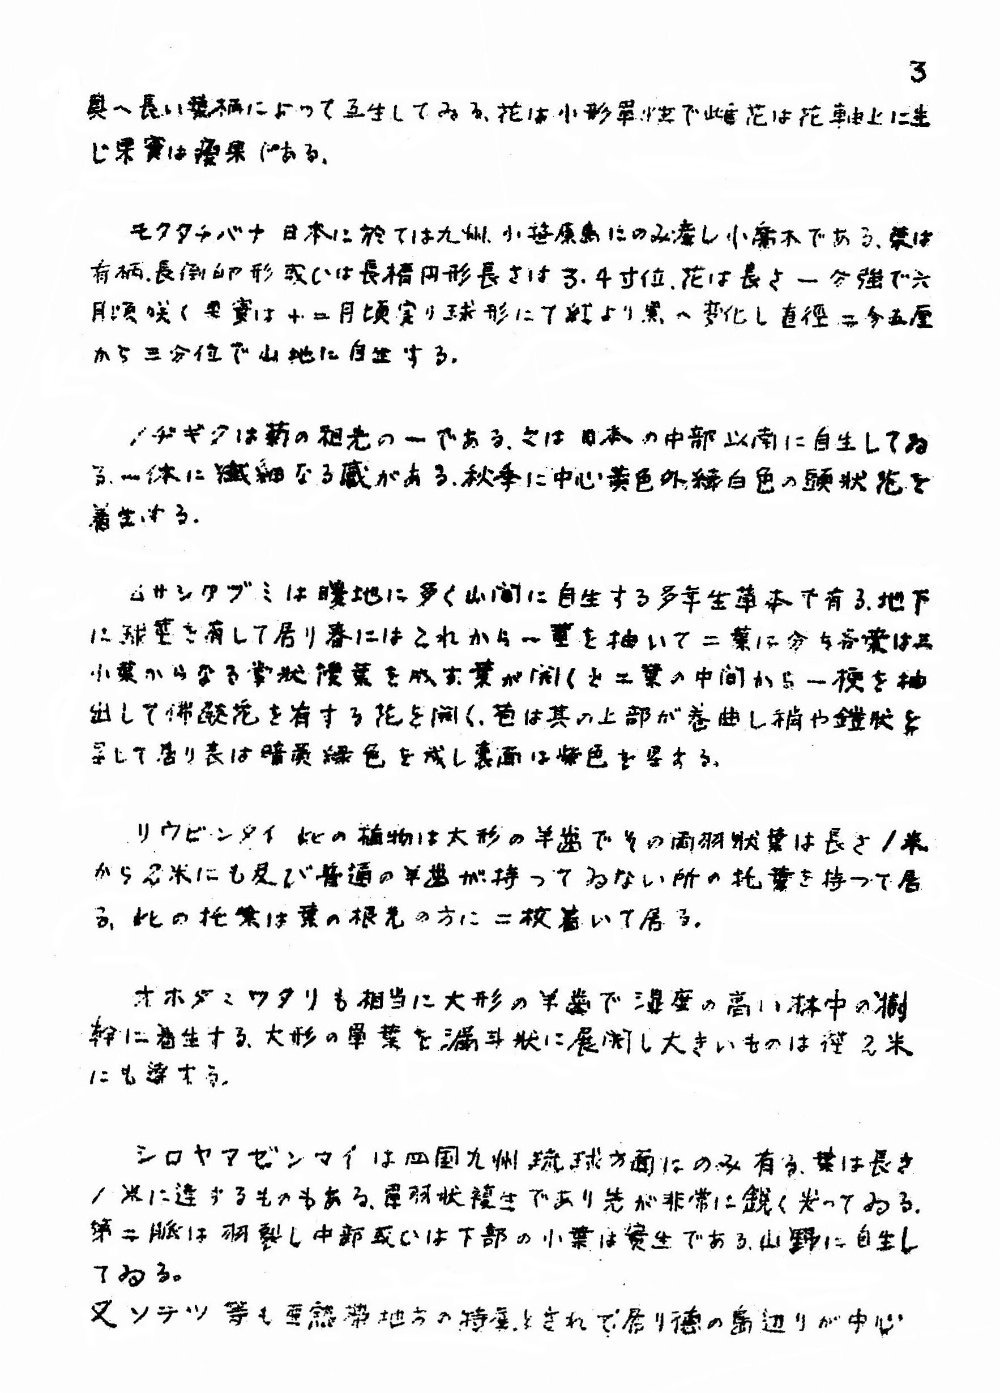 3
具へ長い葉柄によって互生してゐる、花は小形單性で雌花は花軸上に生
じ果實は瘦果である、
モクタチバナ 日本に於ては九州、小笠原島にのみ産し小喬木である、葉は
有柄、長倒卵形或いは長楕円形長さは3.4寸位、花は長さ一分強で六
月頃咲く果實は十二月頃実り球形にて紅より黒へ変化し直徑二分五厘
から三分位で山地に自生する.
ノヂギクは菊の祖先の一である、之は日本の中部以南に自生してゐ
る、一体に繊細なる感がある、秋季に中心黄色外縁白色の頭状花を
着生する.
ムサシアブミは暖地に多く山間に自生する多年生草本で有る、地下
に球茎を有して居り春にはこれから一莖を抽いて二葉に分ち各葉は三
小葉からなる掌状複葉を成す、葉が開くと二葉の中間から一梗を抽
出して佛焔苞を有する花を開く、苞は其の上部が巻曲し稍や鐙状を
呈して居り表は暗黄緑色を成し裏面は紫色を呈する、
リウビンタイ 此の植物は大形の羊歯でその両羽状葉は長さ1米
から2米にも及び普通の羊歯が持ってゐない所の托葉を持つて居
る、此の托葉は葉の根元の方に二枚着いて居る.
オホダミワタリも相当に大形の羊歯で湿度の高い林中の樹
幹に着生する、大形の單葉を漏斗状に展開し大きいものは徑2米
にも達する、
シロヤマゼンマイは四国九州琉球方面にのみ有る、葉は長さ
1米に達するものもある、單羽状複生であり先が非常に鋭く尖ってゐる.
第二脈は羽裂し中部或いは下部の小葉は實生である、山野に自生し
てゐる。
又ソテツ等も亜熱帯地方の特産とされて居り徳の島辺りが中心